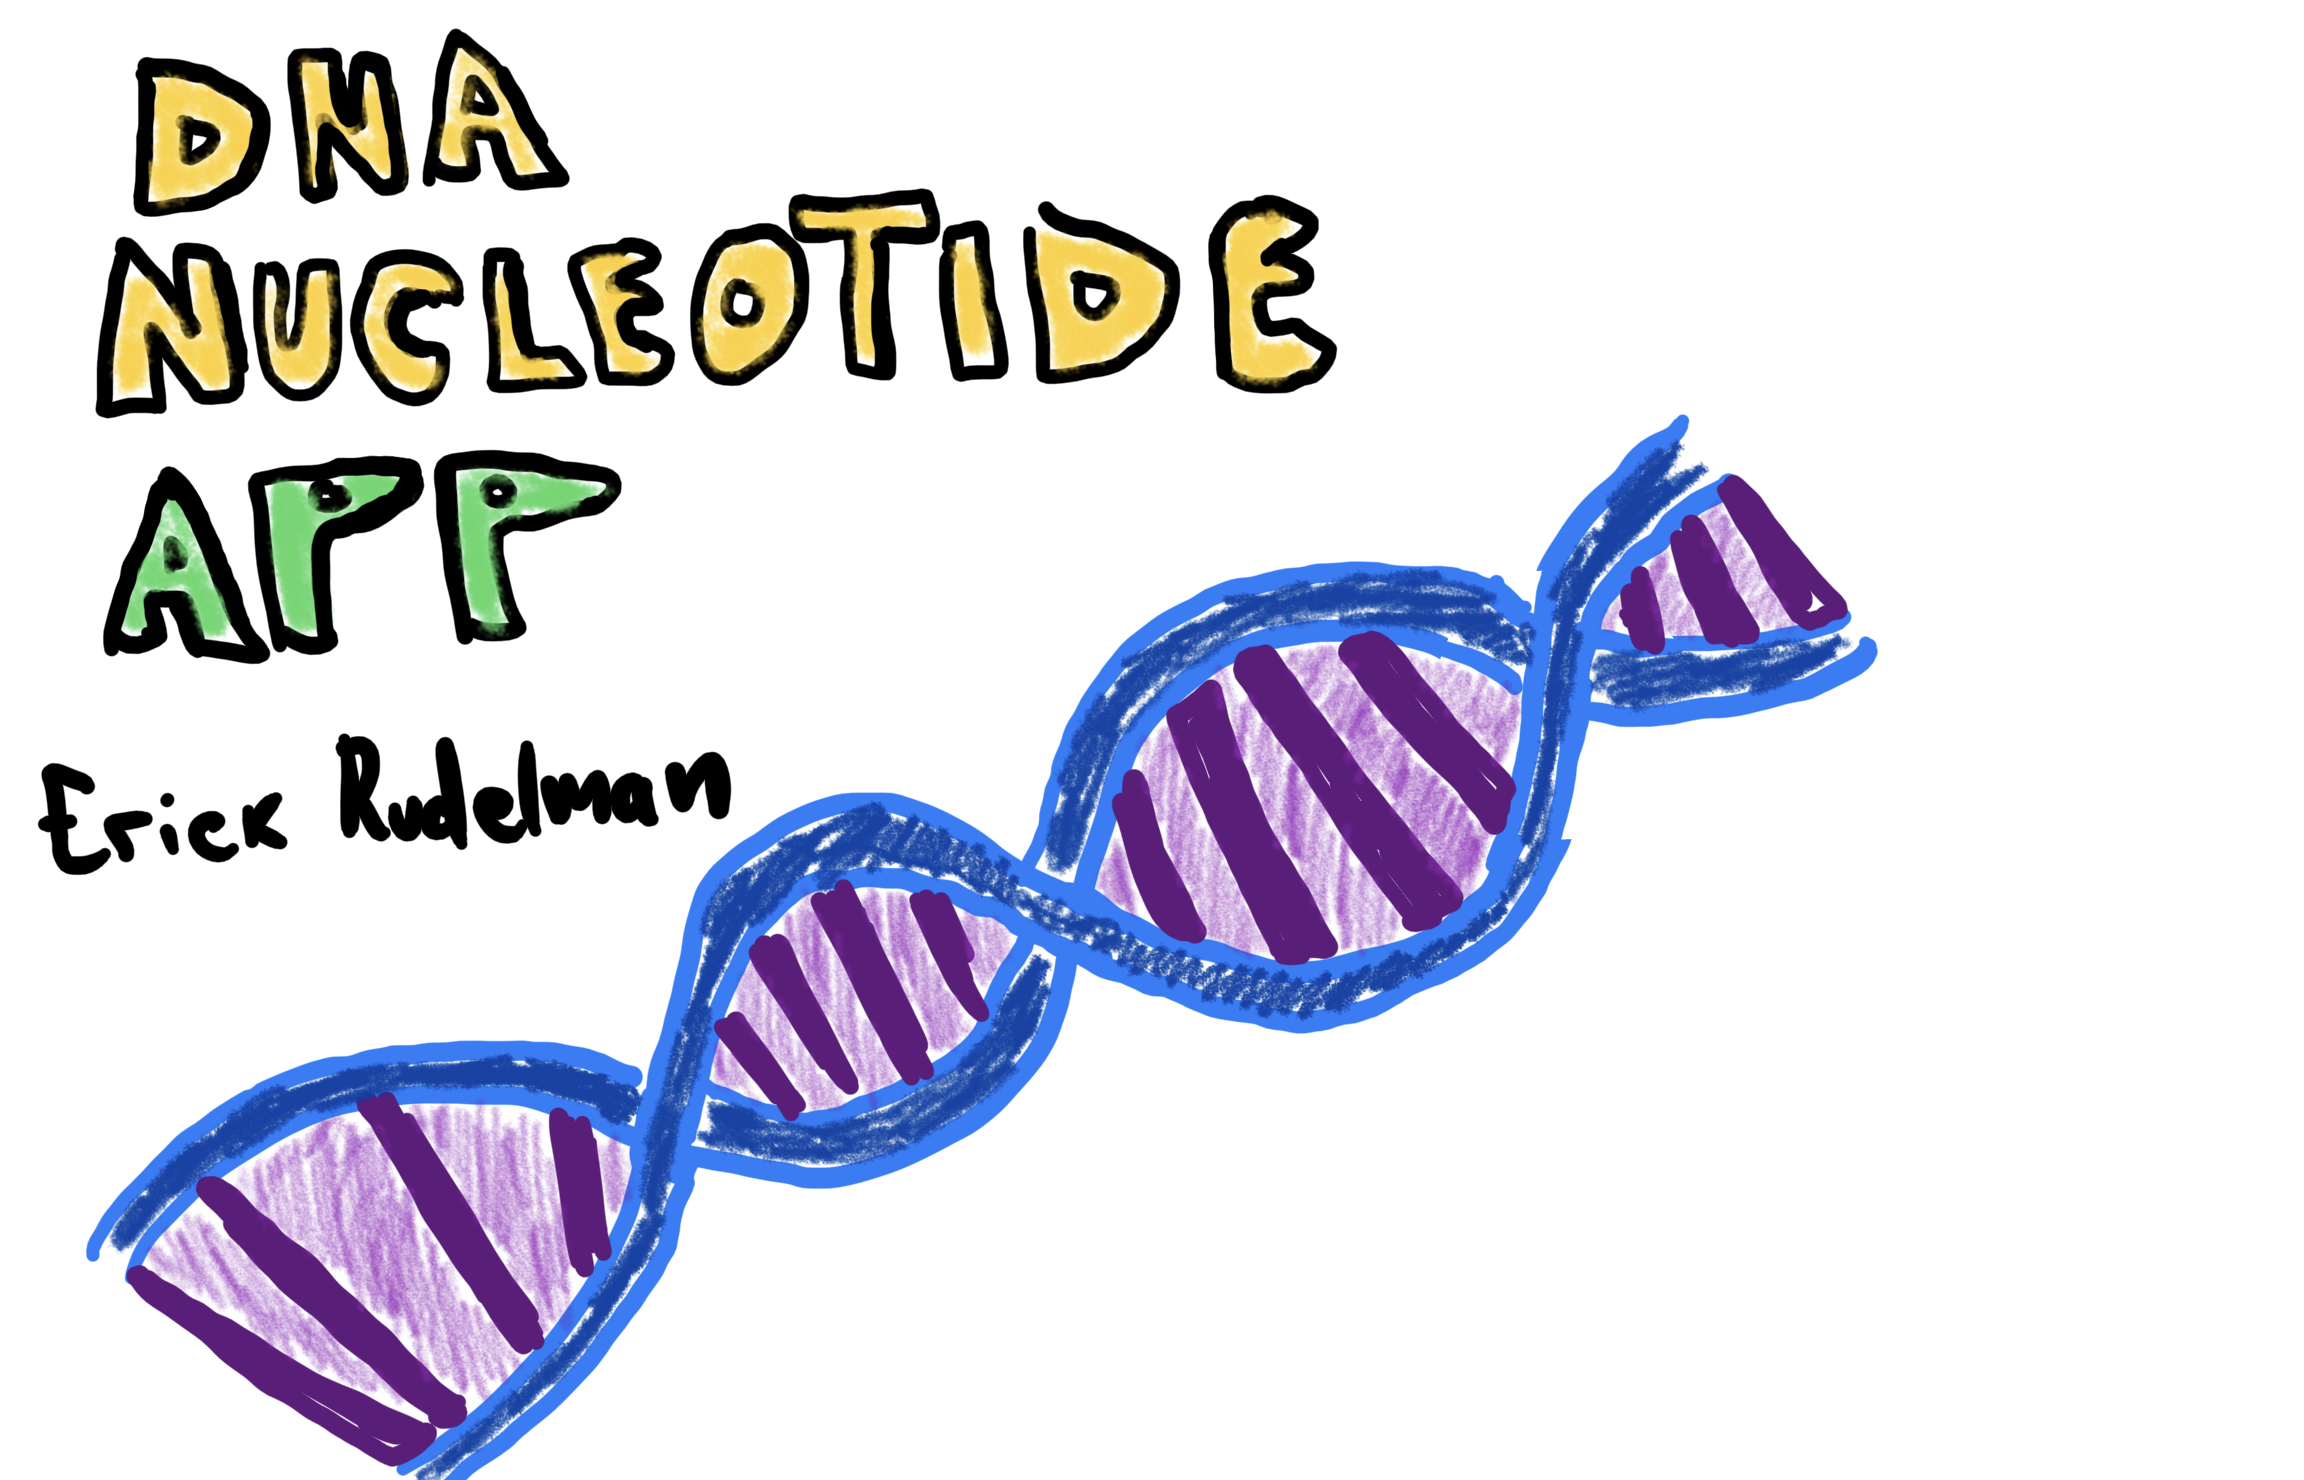 DNA
NUCLEOTIDE
APP
Erick Rudelman